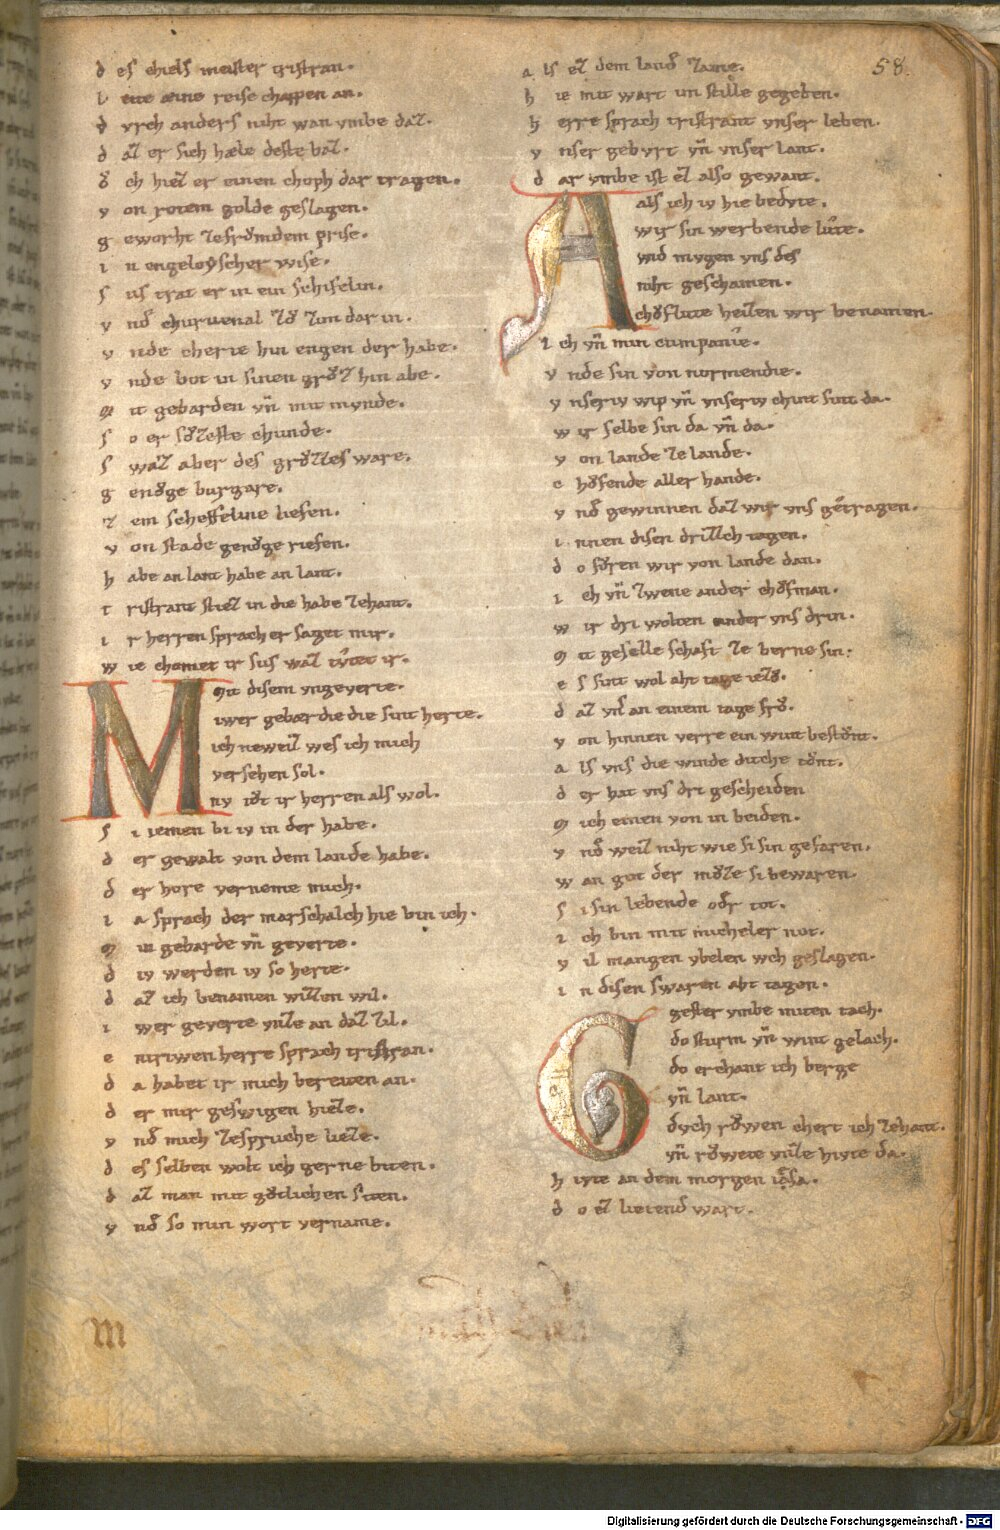 58.
d es chiels meister tristran.
l eite eine reise chappen an.
d vrch anders niht wan vmbe daz.
d az er sich hæle deste baz.
ŏ ch hiez er einen choph dar tragen.
v on rotem golde geslagen.
g eworht zefrŏmdem prise.
i n engeloyscher wise.
s us trat er in ein schiffelin.
v nd̄ churvenal zŏ zim dar in.
v nde cherte hin engen der habe.
v nde bot in sinen grŏz hin abe.
m it gebarden vn̄ mit mvnde.
s o er sŏzeste chunde.
s waz aber des grŏzzes ware.
g enŏge burgare.
z em scheffeline liefen.
v on stade genŏge riefen.
h abe an lant habe an lant.
t ristrant stiez in die habe zehant.
i r herren sprach er saget mir.
w ie chomet ir sus waz tv̂tet ir.
M it disem vngeverte.
iwer gebærdie die sint herte.
ich neweiz wes ich mich
versehen sol.
nv tŏt ir herren als wol.
s i iemen bi iv in der habe.
d er gewalt von dem lande habe.
d er hore verneme mich.
i a sprach der marschalch hie bin ich.
m in gebarde vn̄ geverte.
d iv werden iv so herte.
d az ich benamen wizzen wil.
i wer geverte vnze an daz zil.
e ntriwen herre sprach tristran.
d a habet ir mich bereiten an.
d er mir geswigen hieze.
v nd̄ mich zespruche lieze.
d es selben wolt ich gerne biten.
d az man mit gŏtlichen siten.
v nd̄ so min wort vername.
m
a ls ez dem land̄ zame.
h ie mit wart im stille gegeben.
h erre sprach tristrant vnser leben.
v nser gebvrt vn̄ vnser lant.
d ar vmbe ist ez also gewant.
A als ich iv hie bedvte.
wir sin werbende lv̂te.
vnd mvgen vns des
niht geschamen.
chŏflute heizen wir benamen.
i ch vn̄ min cumpanîe.
v nde sin von normendie.
v nseriv wip vn̄ vnseriv chint sint da.
w ir selbe sin da vn̄ da.
v on lande ze lande.
c hŏfende aller hande.
v nd̄ gewinnen daz wir vns getragen.
i nnen disen drizzch tagen.
d o fŏren wir von lande dan.
i ch vn̄ zwene ander chŏfman.
w ir dri wolten ander vns drin.
m it geselle schaft ze berne sin:
e s sint wol aht tage iezŏ.
d az vns an einem tage frŏ.
v on hinnen verre ein wint bestŏnt.
a ls vns die winde dicche tŏnt.
d er hat vns dri gescheiden
m ich einen von in beiden.
v nd̄ weiz niht wie si sin gefaren.
w an got der mŏze si bewaren.
s i sin lebende od̄r tot.
i ch bin mit micheler not.
v il mangen vbelen wch geslagen.
i n disen swaren aht tagen.
G gester vmbe miten tach.
do sturm vn̄ wint gelach.
do erchant ich berge
vn̄ lant.
dvch rŏwen chert ich zehant.
vn̄ rŏwete vnze hivte da.
h ivte an dem morgen iêsa.
d o ez lietend wart.
Digitalisierung gefördert durch die Deutsche Forschungsgemeinschaft - DFG